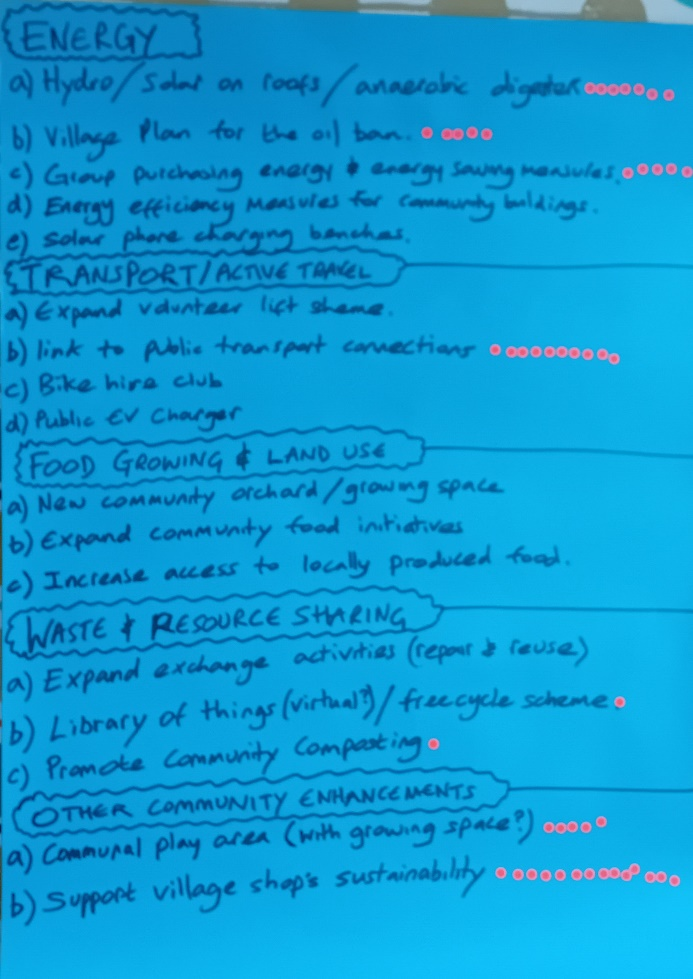 ENERGY
a) Hydro/Solar on roofs/anaerobic digester
b) Village Plan for the oil ban.
c) Group purchasing energy & energy saving measures.
d) Energy efficiency measures for community buildings.
e) Solar phone charging benches.
TRANSPORT/ACTIVE TRAVEL
a) Expand volunteer lift sheme.
b) link to public transport connections
c) Bike hire club
d) Public EV Charger
FOOD GROWING & LAND USE
a) New community orchard/growing space
b) Expand community food initiatives
c) Increase access to locally produced food.
WASTE & RESOURCE SHARING
a) Expand exchange activities (repair & reuse)
b) Library of things (virtual?)/freecycle scheme
c) Promote Community Composting
OTHER COMMUNITY ENHANCEMENTS
a) Communal play area (with growing space?)
b) Support village shop's sustainability